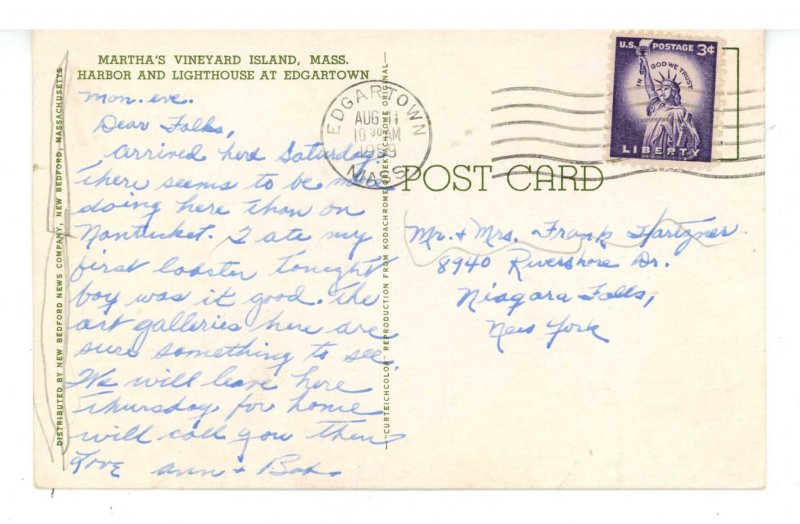 MARTHA'S VINEYARD ISLAND, MASS.
HARBOR AND LIGHTHOUSE AT EDGARTOWN
Mon. eve.
Dear Folks,
Arrived here Saturday.
There seems to be more
doing here than on
Nantucket. I ate my
first lobster tonight
boy was it good. The
art galleries here are
sure something to see.
We will leave here
Thursday for home
will call you then
Love Ann + Bob
DISTRIBUTED BY NEW BEDFORD NEWS COMPANY, NEW BEDFORD, MASSACHUSETTS
"CURTEICHCOLOR" REPRODUCTION FROM KODACHROME OR EKTACHROME ORIGINAL
EDGARTOWN
AUG 11
10 30 AM
MASS.
U.S. POSTAGE 3¢
IN GOD WE TRUST
LIBERTY
POST CARD
Mr. + Mrs. Frank Hartzner
8940 Rivershore Dr.
Niagara Falls,
New York